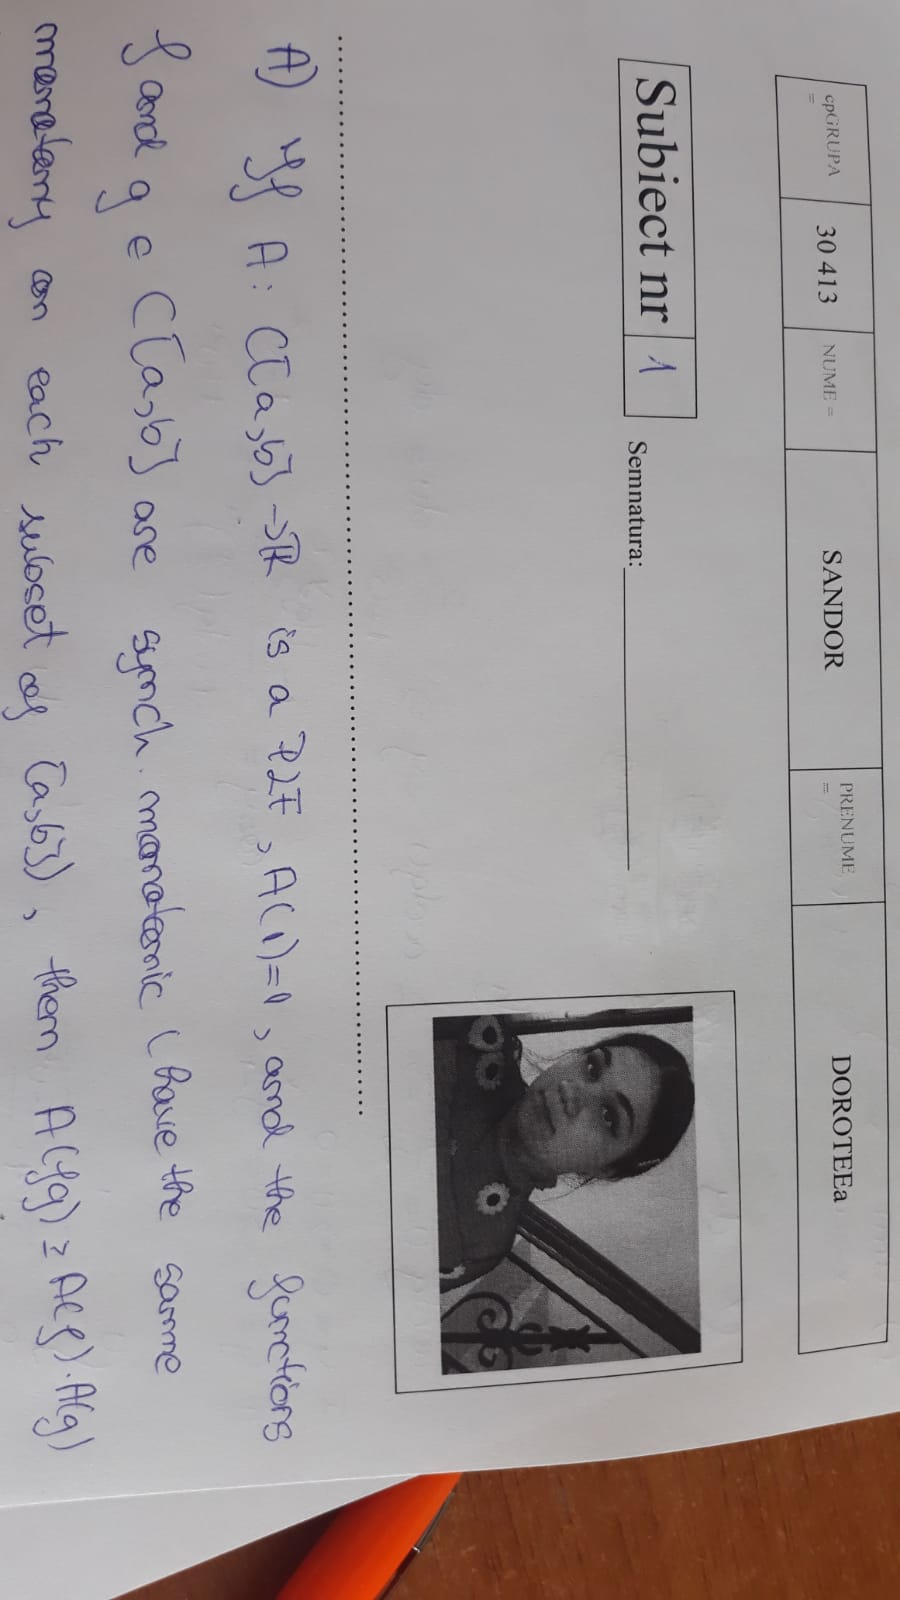 cpGRUPA = 30 413 NUME = SANDOR PRENUME = DOROTEEa
Subiect nr 1 Semnatura:
A) If A: C[a,b] → ℝ is a PLF, A(1)=1, and the functions
f and g ∈ C[a,b] are synch. monotonic (have the same
monotony on each subset of [a,b]), then A(fg) ≥ A(f)·A(g)